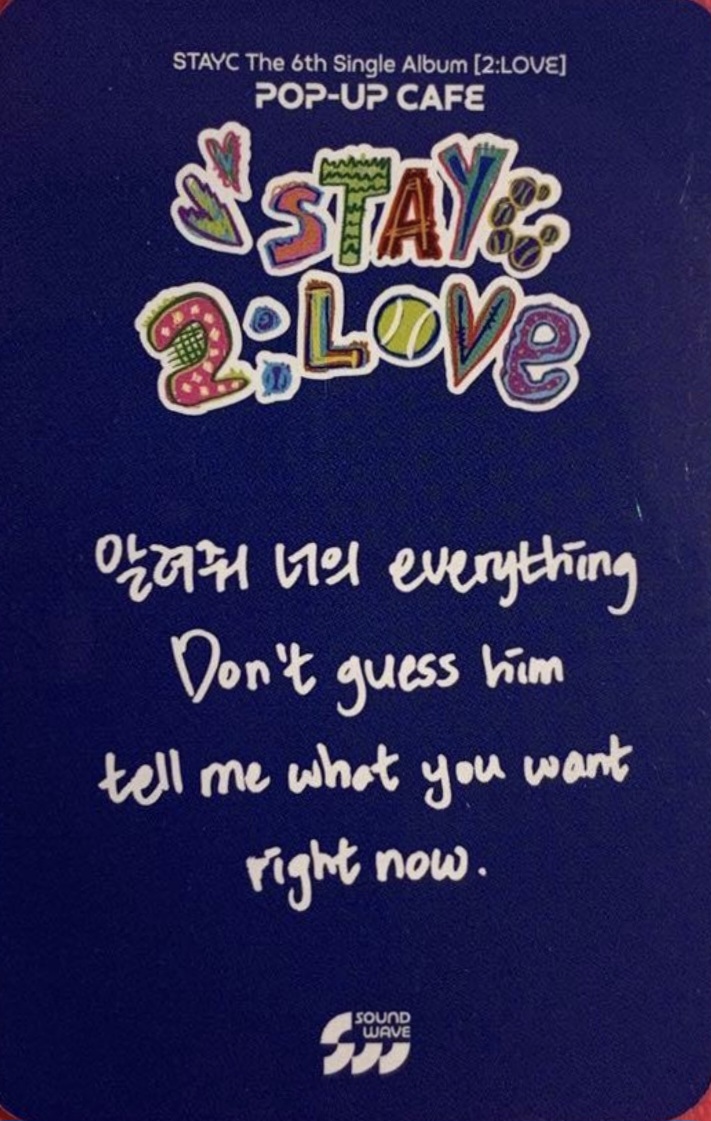 STAYC The 6th Single Album [2:LOVE]
POP-UP CAFE
STAYC
2:LOVe
알려줘 너의 everything
Don't guess him
tell me what you want
right now.
SOUND
WAVE